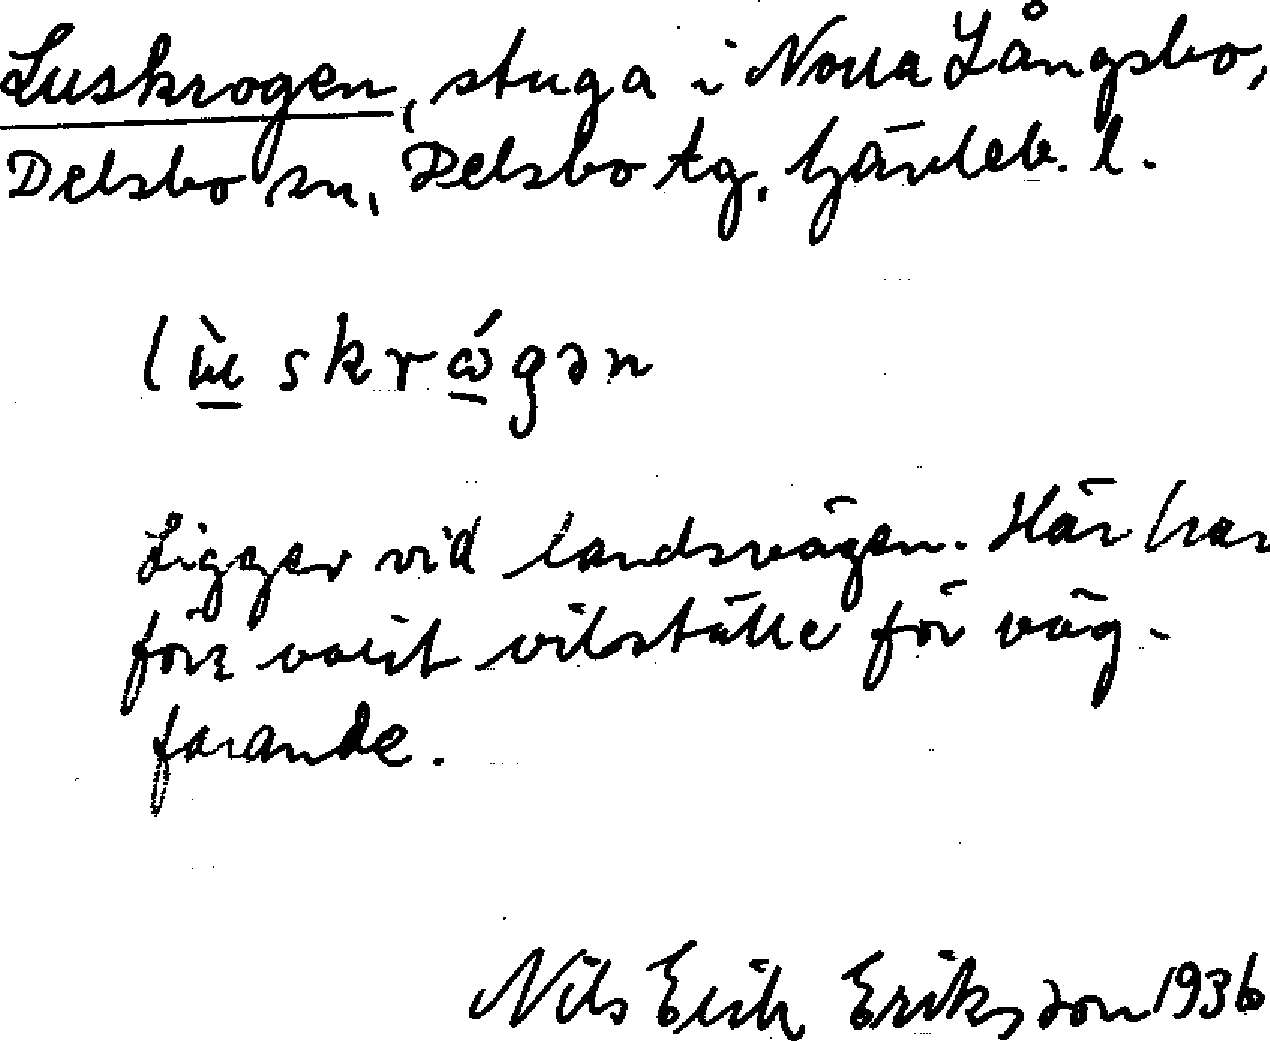 Luskrogen, stuga i Norra Långsbo,
Delsbo sn, Delsbo tg, Gävleb. l.
Ligger vid landsvägen. Här har
förr varit viloställe för väg-
farande.
Nils Erik Eriksson 1936